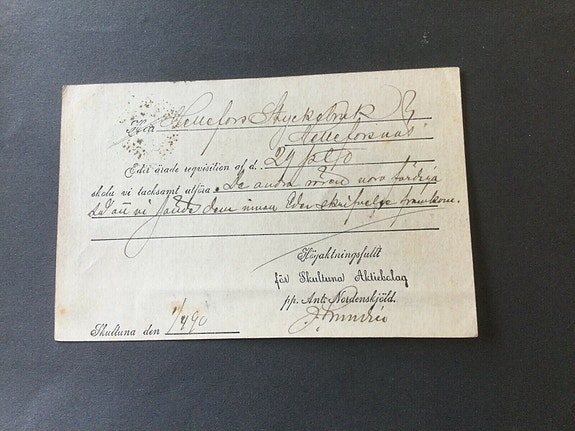 Herr Hellefors Styckebruk
Helleforsnäs
Edra ärade reqvisition af d. 29 pto
skola vi tacksamt utföra. De andra rören voro färdiga
så att vi sände dem innan Eder skrifvelse framkom.
Högaktningsfullt
för Skultuna Aktiebolag
pp. Ant. Nordenskjöld.
Skultuna den 1/4 90